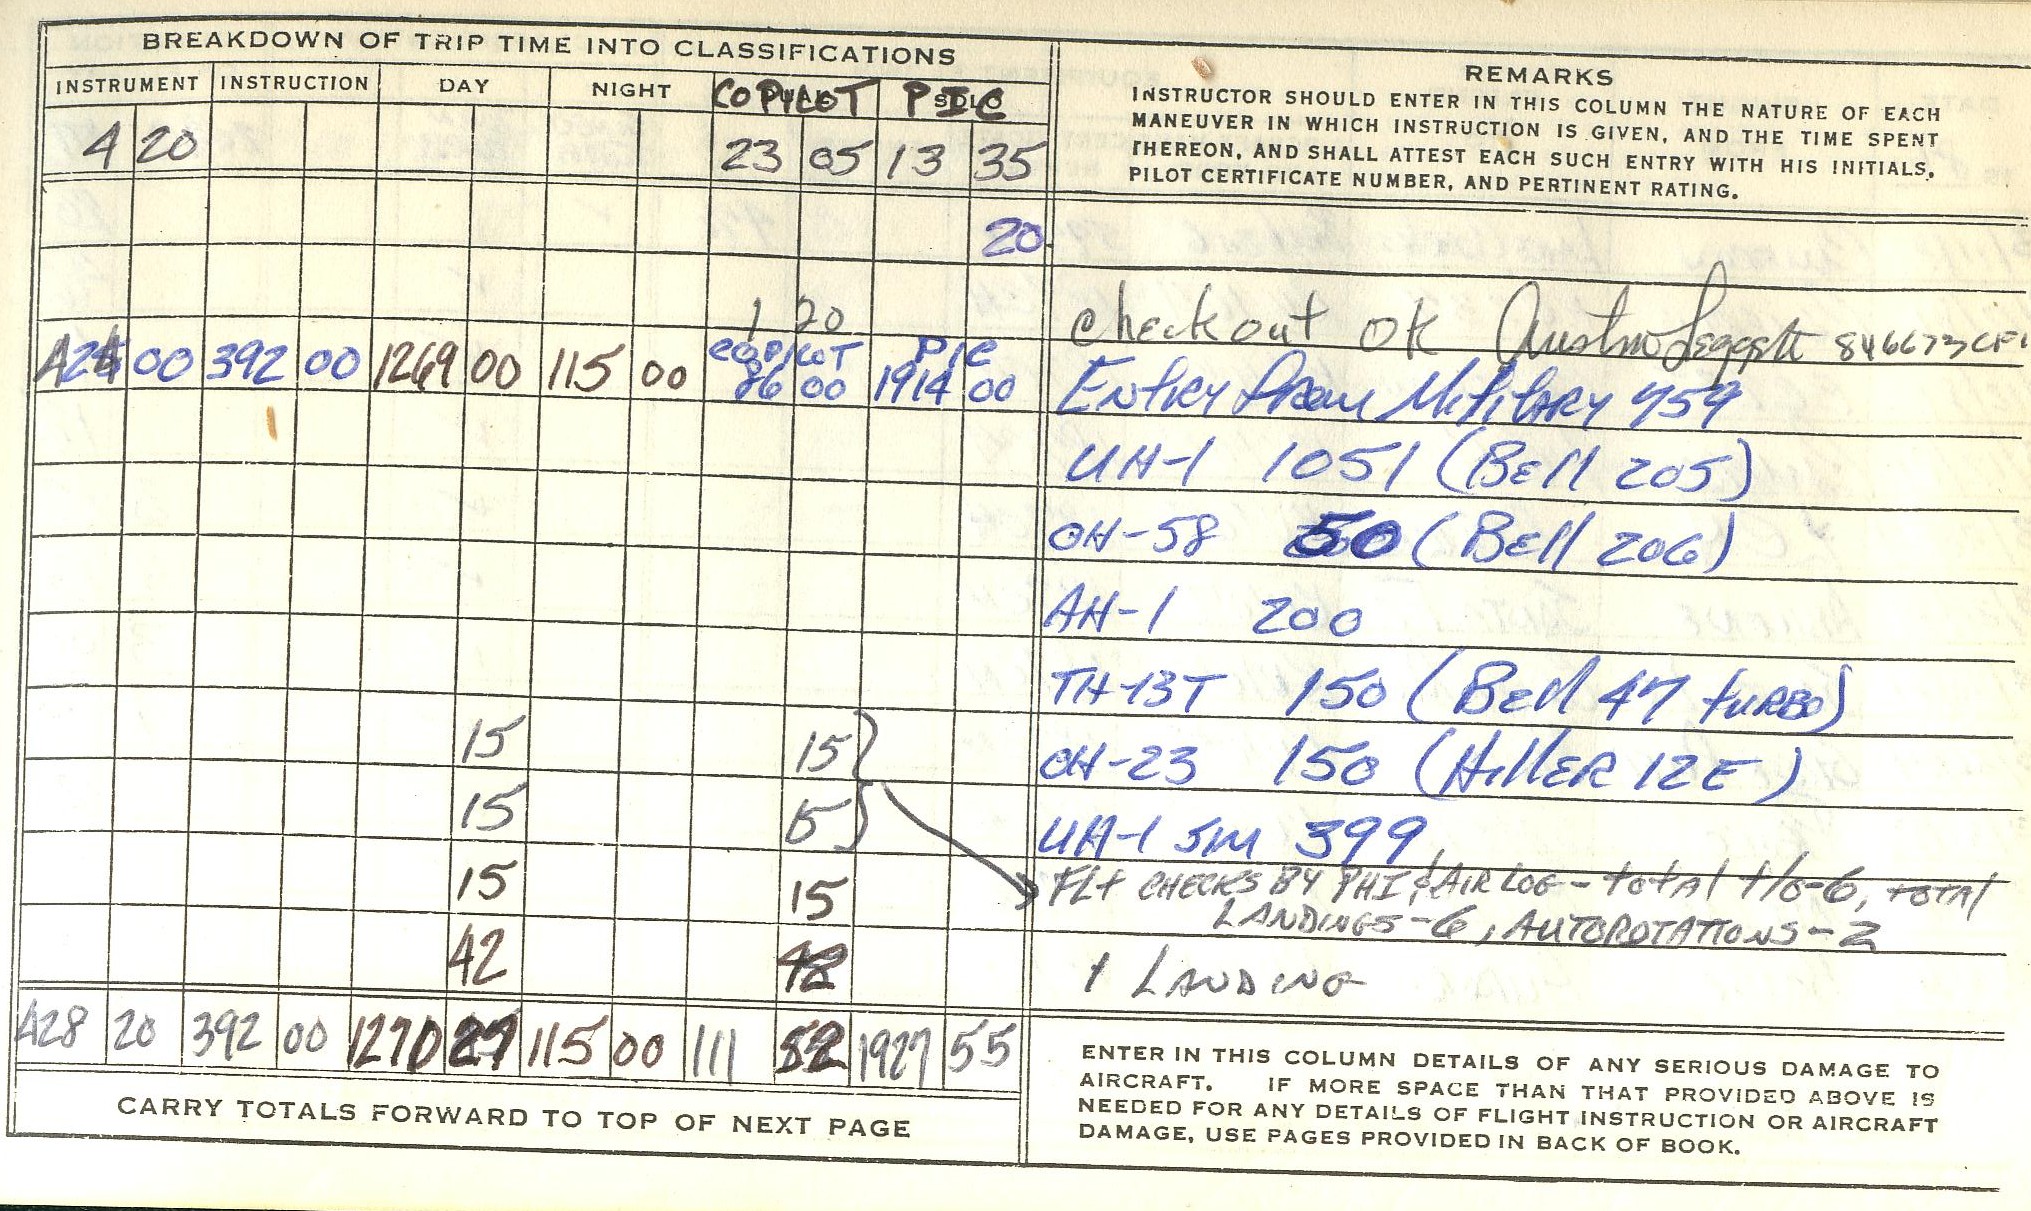 BREAKDOWN OF TRIP TIME INTO CLASSIFICATIONS
INSTRUMENT INSTRUCTION DAY NIGHT COPILOT PIC
4 20 23 05 13 35
REMARKS
INSTRUCTOR SHOULD ENTER IN THIS COLUMN THE NATURE OF EACH
MANEUVER IN WHICH INSTRUCTION IS GIVEN, AND THE TIME SPENT
THEREON, AND SHALL ATTEST EACH SUCH ENTRY WITH HIS INITIALS,
PILOT CERTIFICATE NUMBER, AND PERTINENT RATING.
20
1 20 checkout OK 846673CFI
copilot PIC
424 00 392 00 1269 00 115 00 86 00 1914 00 Entry from Military 759
UH-1 1051 (Bell 205)
OH-58 50 (Bell 206)
AH-1 200
TH-13T 150 (Bell 47 turbo)
15 15 OH-23 150 (Hiller 12E)
15 15 UH-1 SIM 399
15 15 FLT CHECKS BY PHI & AIR LOG - total t/o-6, total
LANDINGS-6, AUTOROTATIONS-2
42 42 1 LANDING
428 20 392 00 1270 27 115 00 111 52 1927 55
CARRY TOTALS FORWARD TO TOP OF NEXT PAGE
ENTER IN THIS COLUMN DETAILS OF ANY SERIOUS DAMAGE TO
AIRCRAFT. IF MORE SPACE THAN THAT PROVIDED ABOVE IS
NEEDED FOR ANY DETAILS OF FLIGHT INSTRUCTION OR AIRCRAFT
DAMAGE, USE PAGES PROVIDED IN BACK OF BOOK.